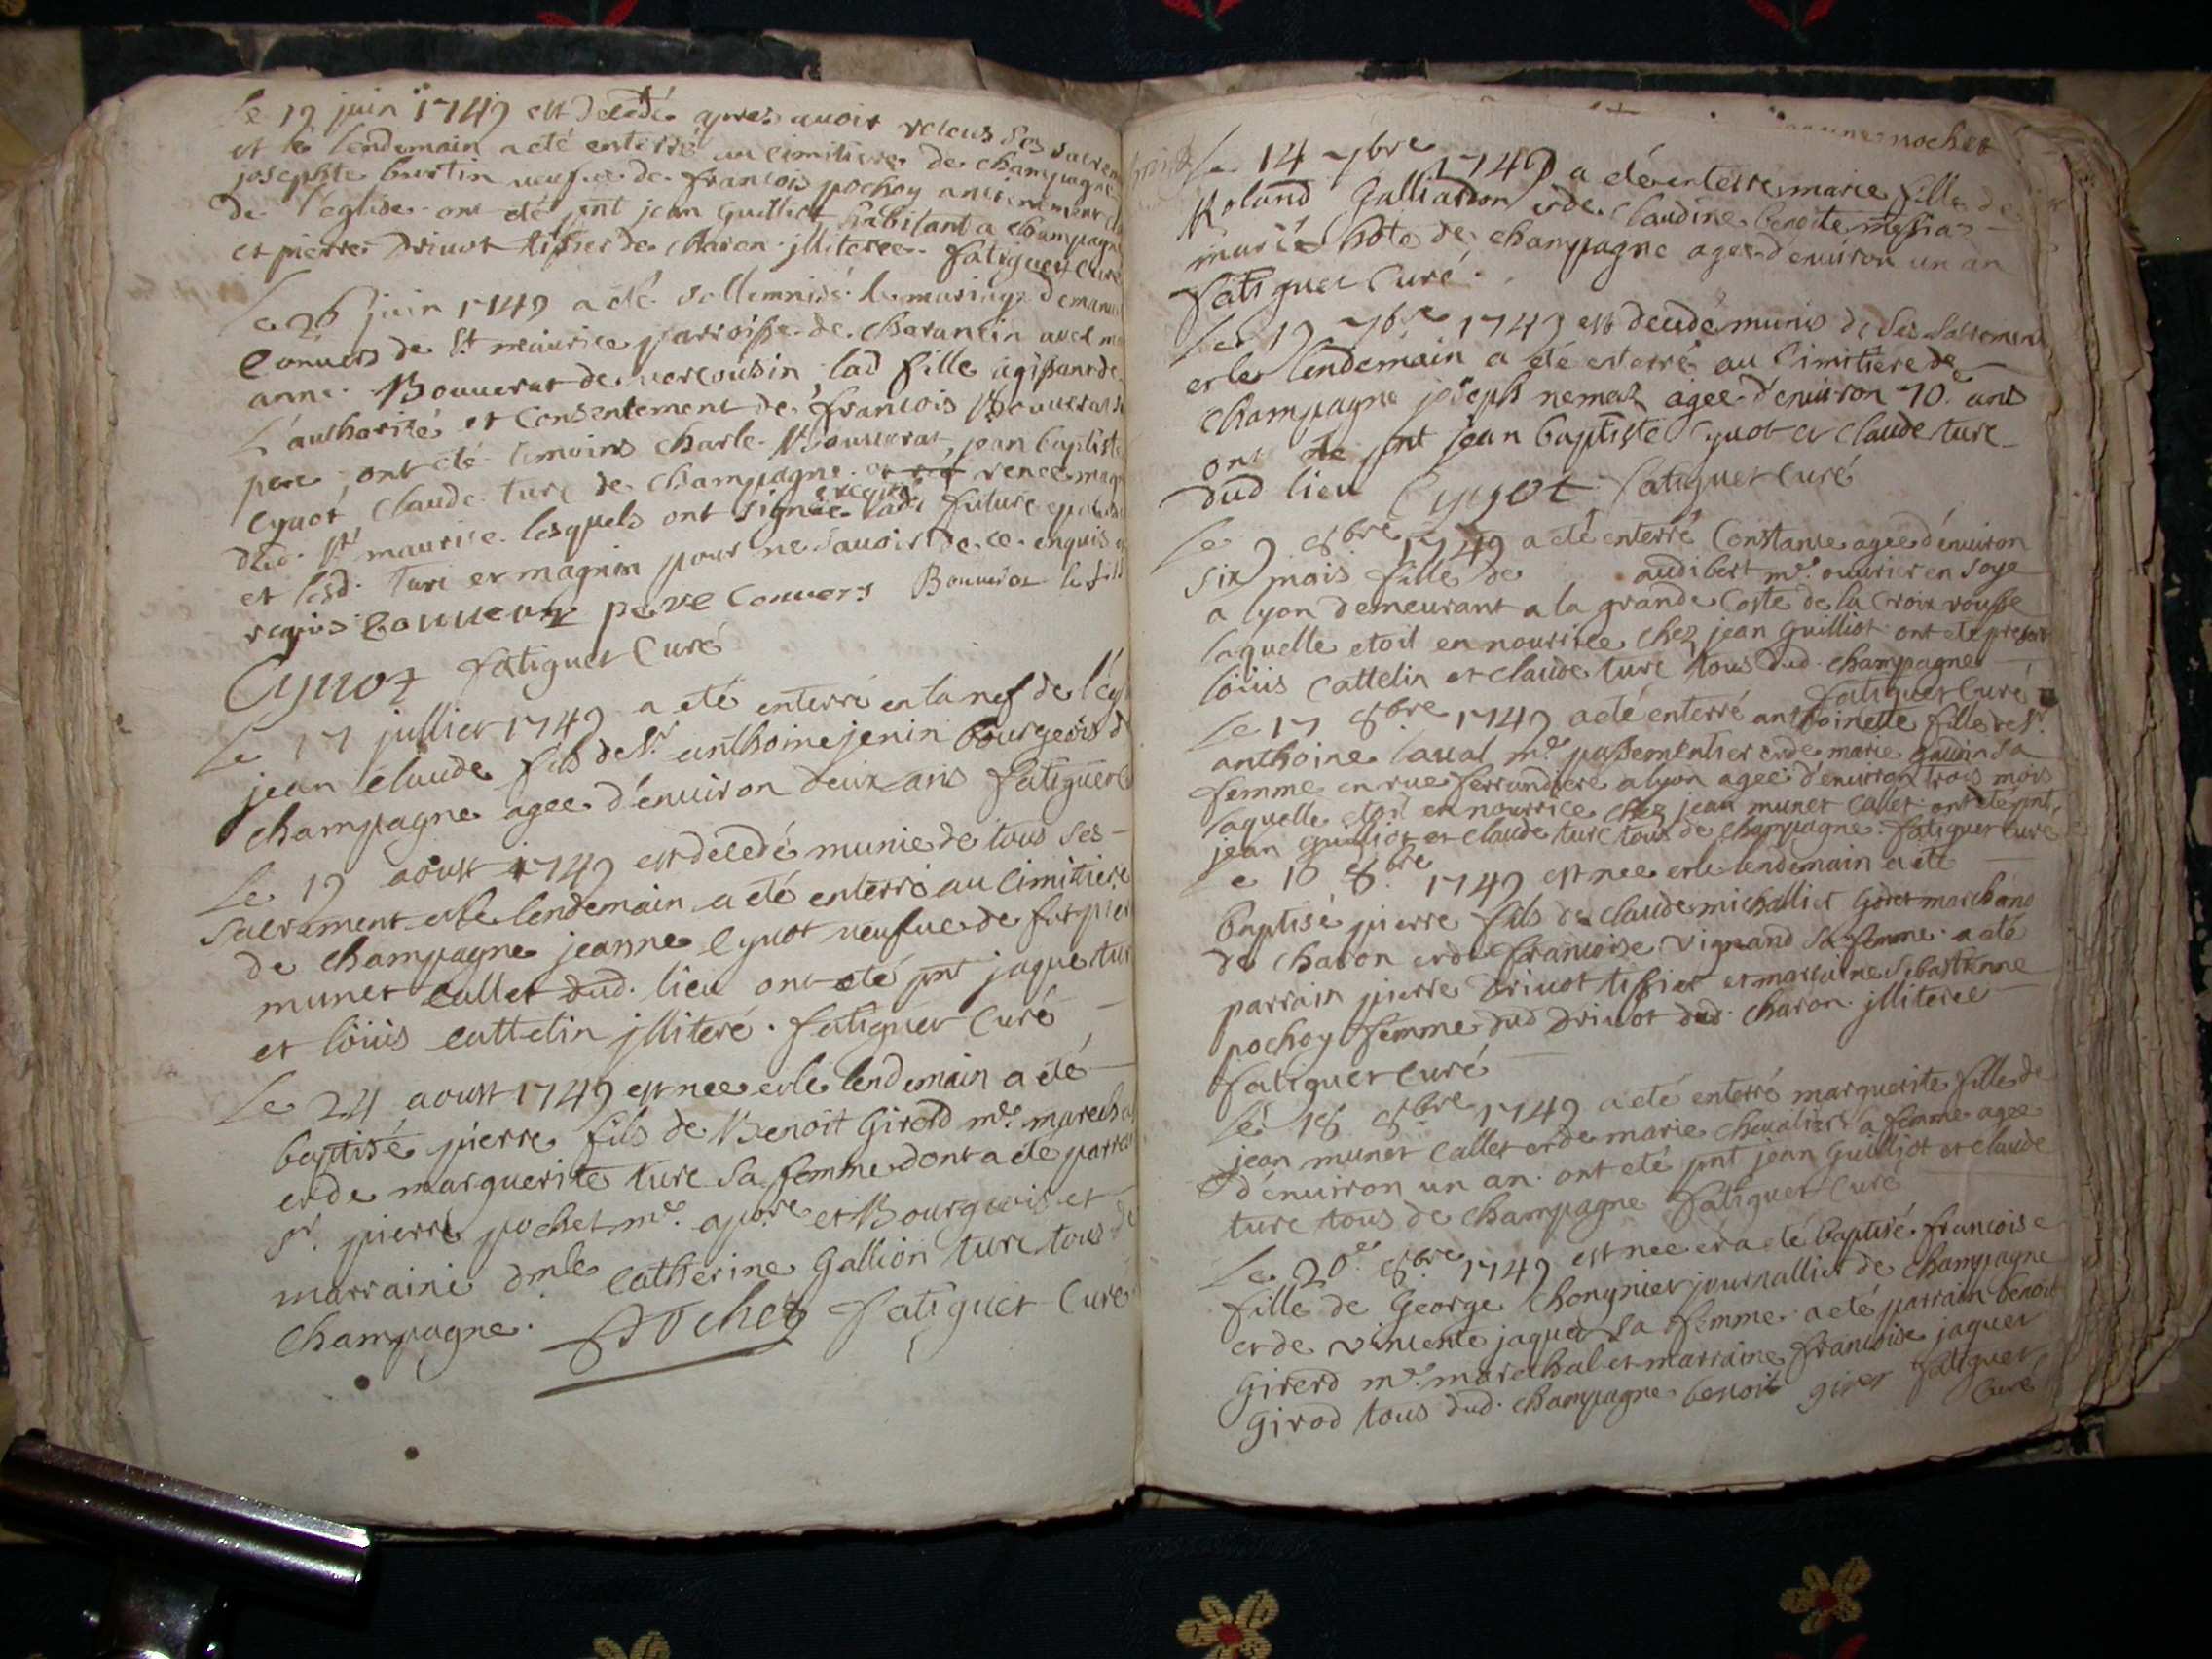 le 19 juin 1749 est decedé apres avoir receus ses sacrem
et le lendemain a eté enterré au cimitiere de champagne
josephte burtin veufve de francois pochoy anciennement
de l'eglise ont eté pnt jean Guilliot habitant a champagne
et pierre Drivot tissier de charon illiteree. fatiguet Curé
Le 26 juin 1749 a eté sollemnisé le mariage d'emanu
Convers de St maurice parroisse de charancin avec
anne Bouverat de vercousin lad fille agissant de
L'authorité et Consentement de francois Bouverat
pere ont eté temoins charle Bouverat, jean baptiste
Cyuot, Claude turc de champagne et rené mag
dud. St maurice lesquels ont signé exepté lad future epouse
et lesd. turc et magnin pour ne savoir de ce enquis
requis Bouverat pere Convers Bouverat le fils
Cyuot fatiguet Curé
Le 17 jullier 1749 a eté enterré en la nef de l'eg
jean claude fils de Sr. anthoine jenin bourgeois d
champagne agee d'environ deux ans fatiguet
Le 19 aoust 1749 est decedé munie de tous ses
sacrement et le lendemain a eté enterré au cimitiere
de champagne jeanne Cyuot veufve de fut pier
munet Callet dud. lieu ont eté pnt jaque tur
et loüis Cattelin jlliteré. fatiguet Curé
Le 24 aoust 1749 est nee et le lendemain a eté
baptisé pierre fils de Benoit Girerd me. marechal
et de marguerite turc sa femme dont a eté parrai
Sr. pierre pochet me. apore et Bourgeois et
marraine dmle Catherine Gallion turc tous de
Champagne. Pochet fatiguet Curé
pochet
Le 14 7bre 1749 a eté enterré marie fille de
Roland Galliardon et de claudine benoite
mariés hote de champagne agee d'environ un an
fatiguet Curé.
Le 19 7bre 1749 est decedé munis de ses sacrement
et le lendemain a eté enterré au Cimitiere de
champagne joseph nemoz agee d'environ 70 ans
ont ete pnt jean baptiste Cyuot et claude turc
dud lieu Cyuot fatiguet Curé
Le 9 8bre 1749 a eté enterré Constance agee d'environ
six mois fille de audibert me. ouvrier en soye
a lyon demeurant a la grande Coste de la croix rousse
laquelle etoit en nourrice chez jean Guilliot ont eté present
loüis Cattelin et claude turc tous dud. champagne
fatiguet Curé
Le 17 8bre 1749 a eté enterré anthoinette fille de Sr.
anthoine laval me passementier et de marie gaudin sa
femme en rue ferrandiere a lyon agee d'environ trois mois
laquelle etoit en nourrice chez jean munet Callet ont eté pnt,
jean guilliot et claude turc tous de champagne. fatiguet Curé
Le 16 8bre 1749 est nee et le lendemain a eté
baptisé pierre fils de claude michalliet Godet marchand
de charon et de francoise vignand sa femme a eté
parrain pierre Drivot tissier et marraine sebastienne
pochoy femme dud Drivot dud. charon. jlliteree
fatiguet Curé
Le 18 8bre 1749 a eté enterré marguerite fille de
jean munet Callet et de marie chevalier sa femme agee
d'environ un an. ont eté pnt jean Guilliot et claude
turc tous de champagne fatiguet Curé
Le 20e 8bre 1749 est nee et a eté baptisé francoise
fille de George Chongnier journallier de champagne
et de vincente jaquet sa femme. a eté parrain benoit
Girerd me. marechal et marraine francoise jaquet
Girod tous dud. champagne benoit girer fatiguet
Curé